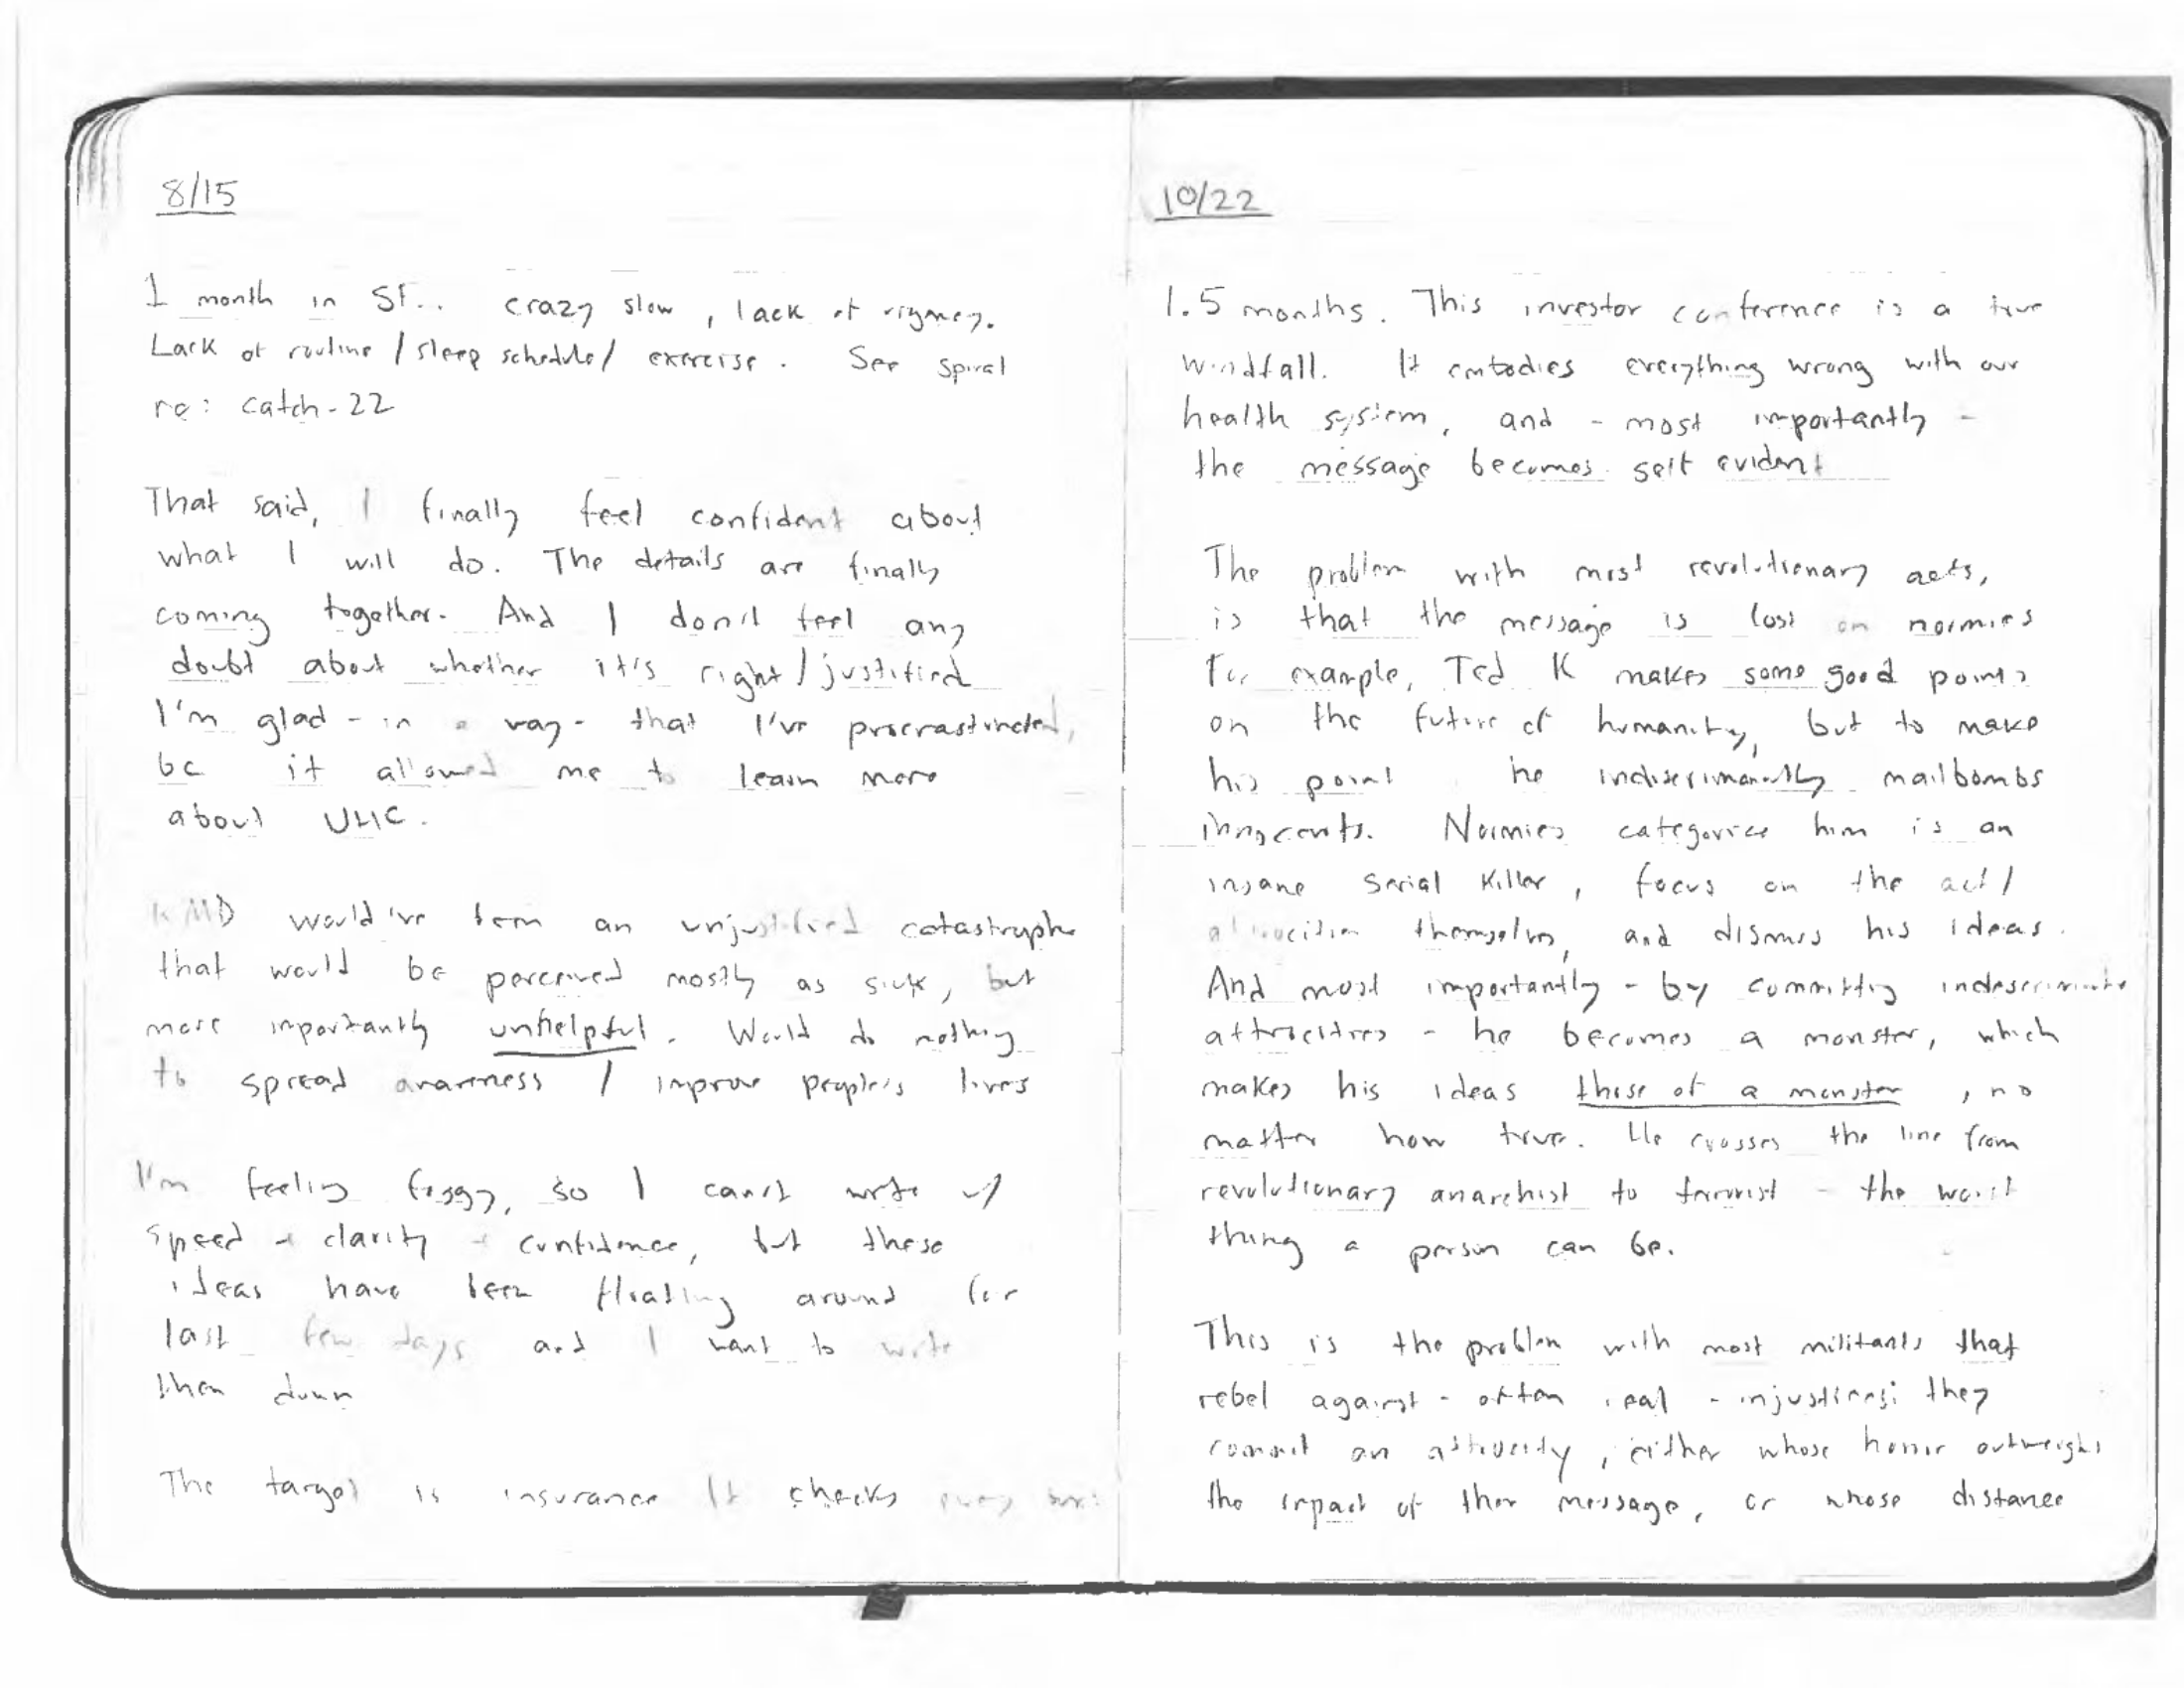 8/15
1 month in SF.. crazy slow, lack of
Lack of routine / sleep schedule / exercise. See spiral
re: catch-22
That said, I finally feel confident about
what I will do. The details are finally
coming together. And I don't feel any
doubt about whether it's right / justified
I'm glad - in a way - that I've procrastinated,
bc it allowed me to learn more
about UHC.
would've been an unjustified catastrophe
that would be perceived mostly as sick, but
more importantly unhelpful. Would do nothing
to spread awareness / improve people's lives
I'm feeling foggy, so I can't write w/
speed + clarity + confidence, but these
ideas have been floating around for
last few days and I want to write
them down
The target is insurance It checks every box
10/22
1.5 months. This investor conference is a true
windfall. It embodies everything wrong with our
health system, and - most importantly -
the message becomes self evident
The problem with most revolutionary acts,
is that the message is lost on normies
For example, Ted K makes some good points
on the future of humanity, but to make
his point he indiscriminantly mailbombs
innocents. Normies categorize him is an
insane serial killer, focus on the act/
themselves, and dismiss his ideas.
And most importantly - by committing indescriminate
attrocities - he becomes a monster, which
makes his ideas those of a monster, no
matter how true. He crosses the line from
revolutionary anarchist to terrorist - the worst
thing a person can be.
This is the problem with most militants that
rebel against - often real - injustices: they
commit an attrocity, either whose horror outweighs
the impact of their message, or whose distance